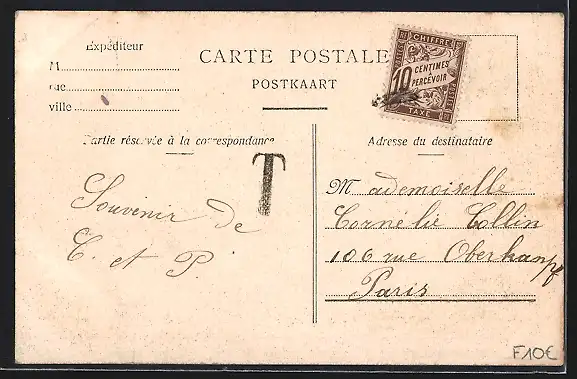 Expéditeur
M
rue
ville
CARTE POSTALE
POSTKAART
CHIFFRE
10 CENTIMES
À PERCEVOIR
TAXE
Partie réservée à la correspondance
Adresse du destinataire
T
Souvenir de
C. et P.
Mademoiselle
Cornélie Collin
106 rue Oberkampf
Paris
F10€